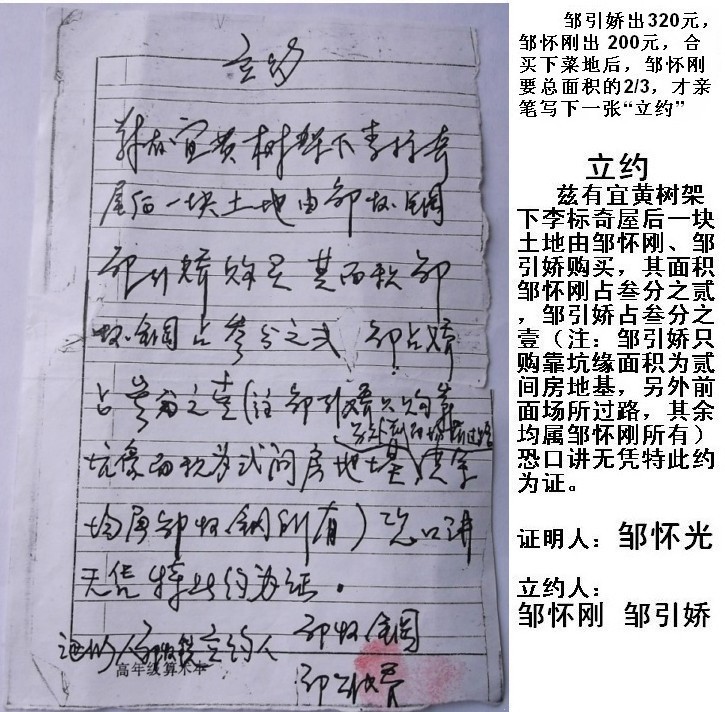 立约
兹有宜黄树架下李标奇
屋后一块土地由邹怀钢
邹引娇购买 其面积邹
怀钢占叁分之弍 邹引娇
占叁分之壹(注邹引娇只购靠
另外前面场所过路
坑缘面积为弍间房地基,其余
均属邹怀钢所有)恐口讲
无凭特此约为证。
证明人邹怀光立约人 邹怀钢
高年级算术本
邹引娇
邹引娇出320元,
邹怀刚出 200元,合
买下菜地后,邹怀刚
要总面积的2/3,才亲
笔写下一张“立约”
立约
兹有宜黄树架
下李标奇屋后一块
土地由邹怀刚、邹
引娇购买,其面积
邹怀刚占叁分之贰
,邹引娇占叁分之
壹(注:邹引娇只
购靠坑缘面积为贰
间房地基,另外前
面场所过路,其余
均属邹怀刚所有)
恐口讲无凭特此约
为证。
证明人:邹怀光
立约人:
邹怀刚 邹引娇